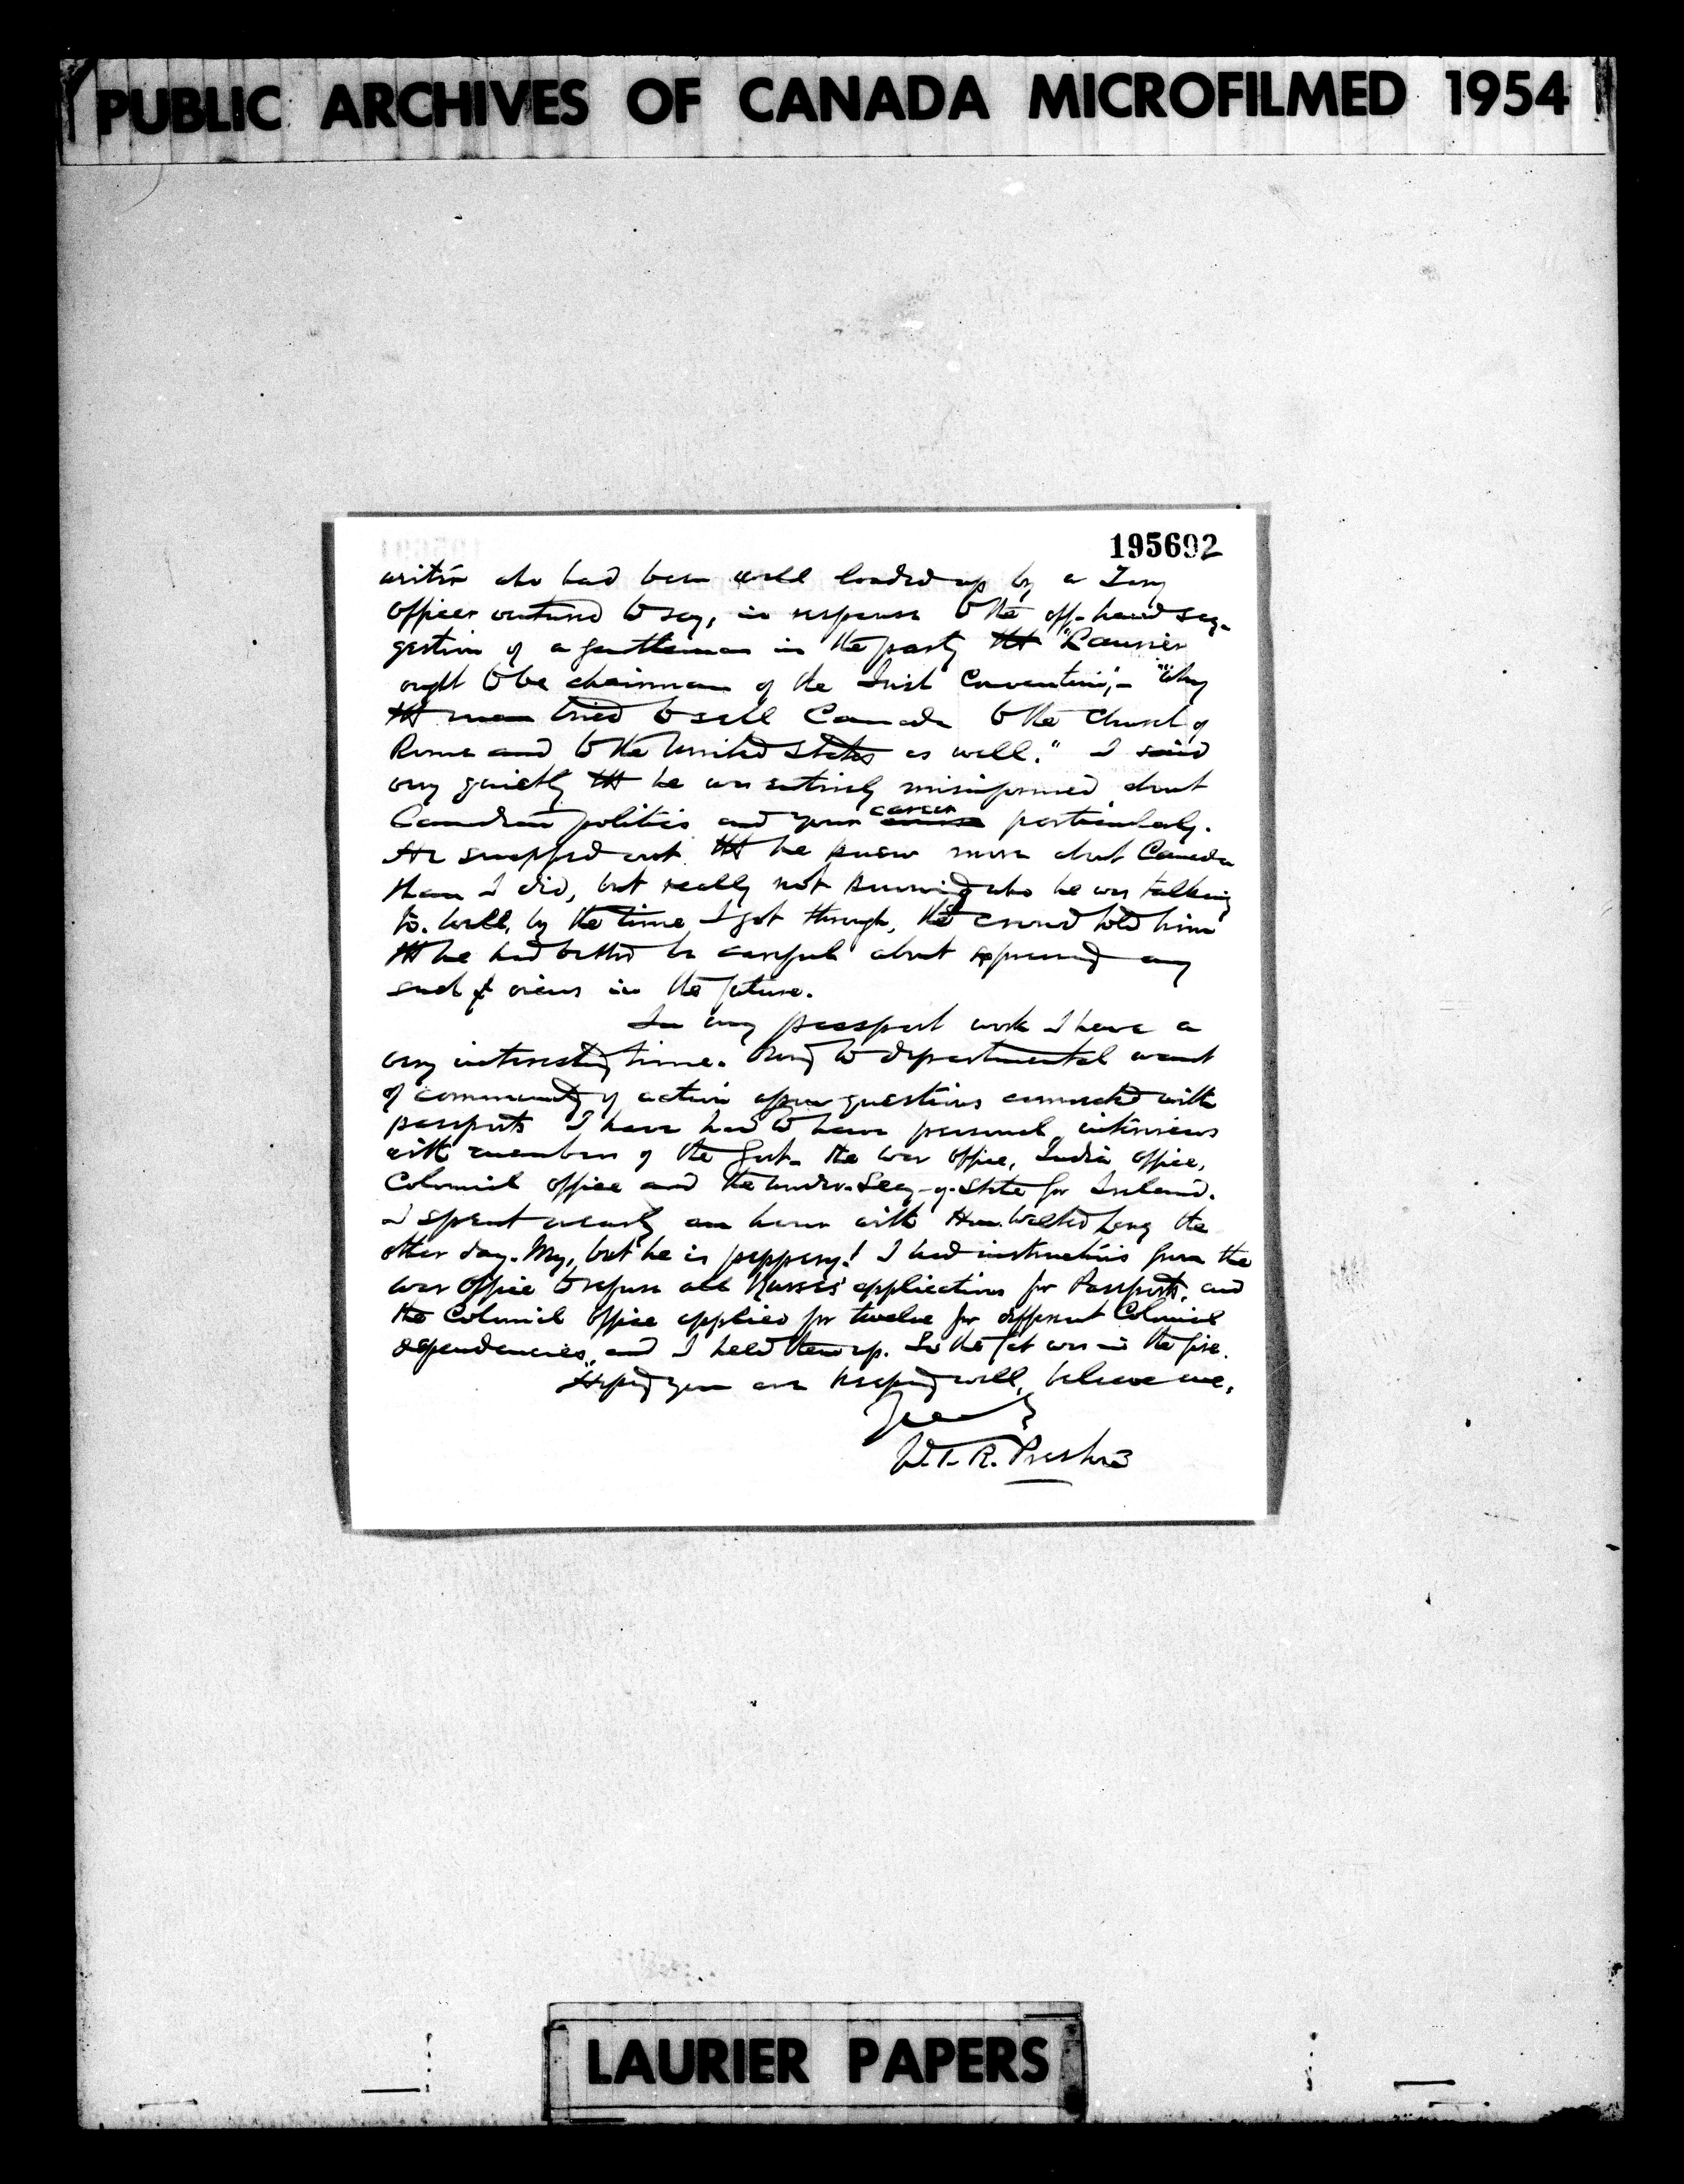 PUBLIC ARCHIVES OF CANADA MICROFILMED 1954
195692
writer who had been well loaded up by a Tory
officer ventured to say, in response to the off-hand sug-
gestion of a gentleman in the party tht "Laurier
ought to be chairman of the Irish Convention",- "Why
tht man tried to sell Canada to the Church of
Rome and to the United States as well." I said
very quietly tht he was entirely misinformed about
Canadian politics and your career particularly.
He snapped out tht he knew more about Canada
than I did, but really not knowing who he was talking
to. Well, by the time I got through, the crowd told him
tht he had better be careful about expressing any
such views in the future.
In my passport work I have a
very interesting time. Owing to departmental want
of community of action upon questions connected with
passports I have had to have personal interviews
with members of the Govt. the War Office, India Office,
Colonial Office and the Under-Secy-of-State for Ireland.
I spent nearly an hour with Hon. Walter Long the
other day. My, but he is peppery! I had instructions from the
War Office to refuse all Nurses' applications for Passports, and
the Colonial Office applied for twelve for different Colonial
dependencies, and I held them up. So the fat was in the fire.
Hoping you are keeping well, believe me,
W.T.R. Preston
LAURIER PAPERS